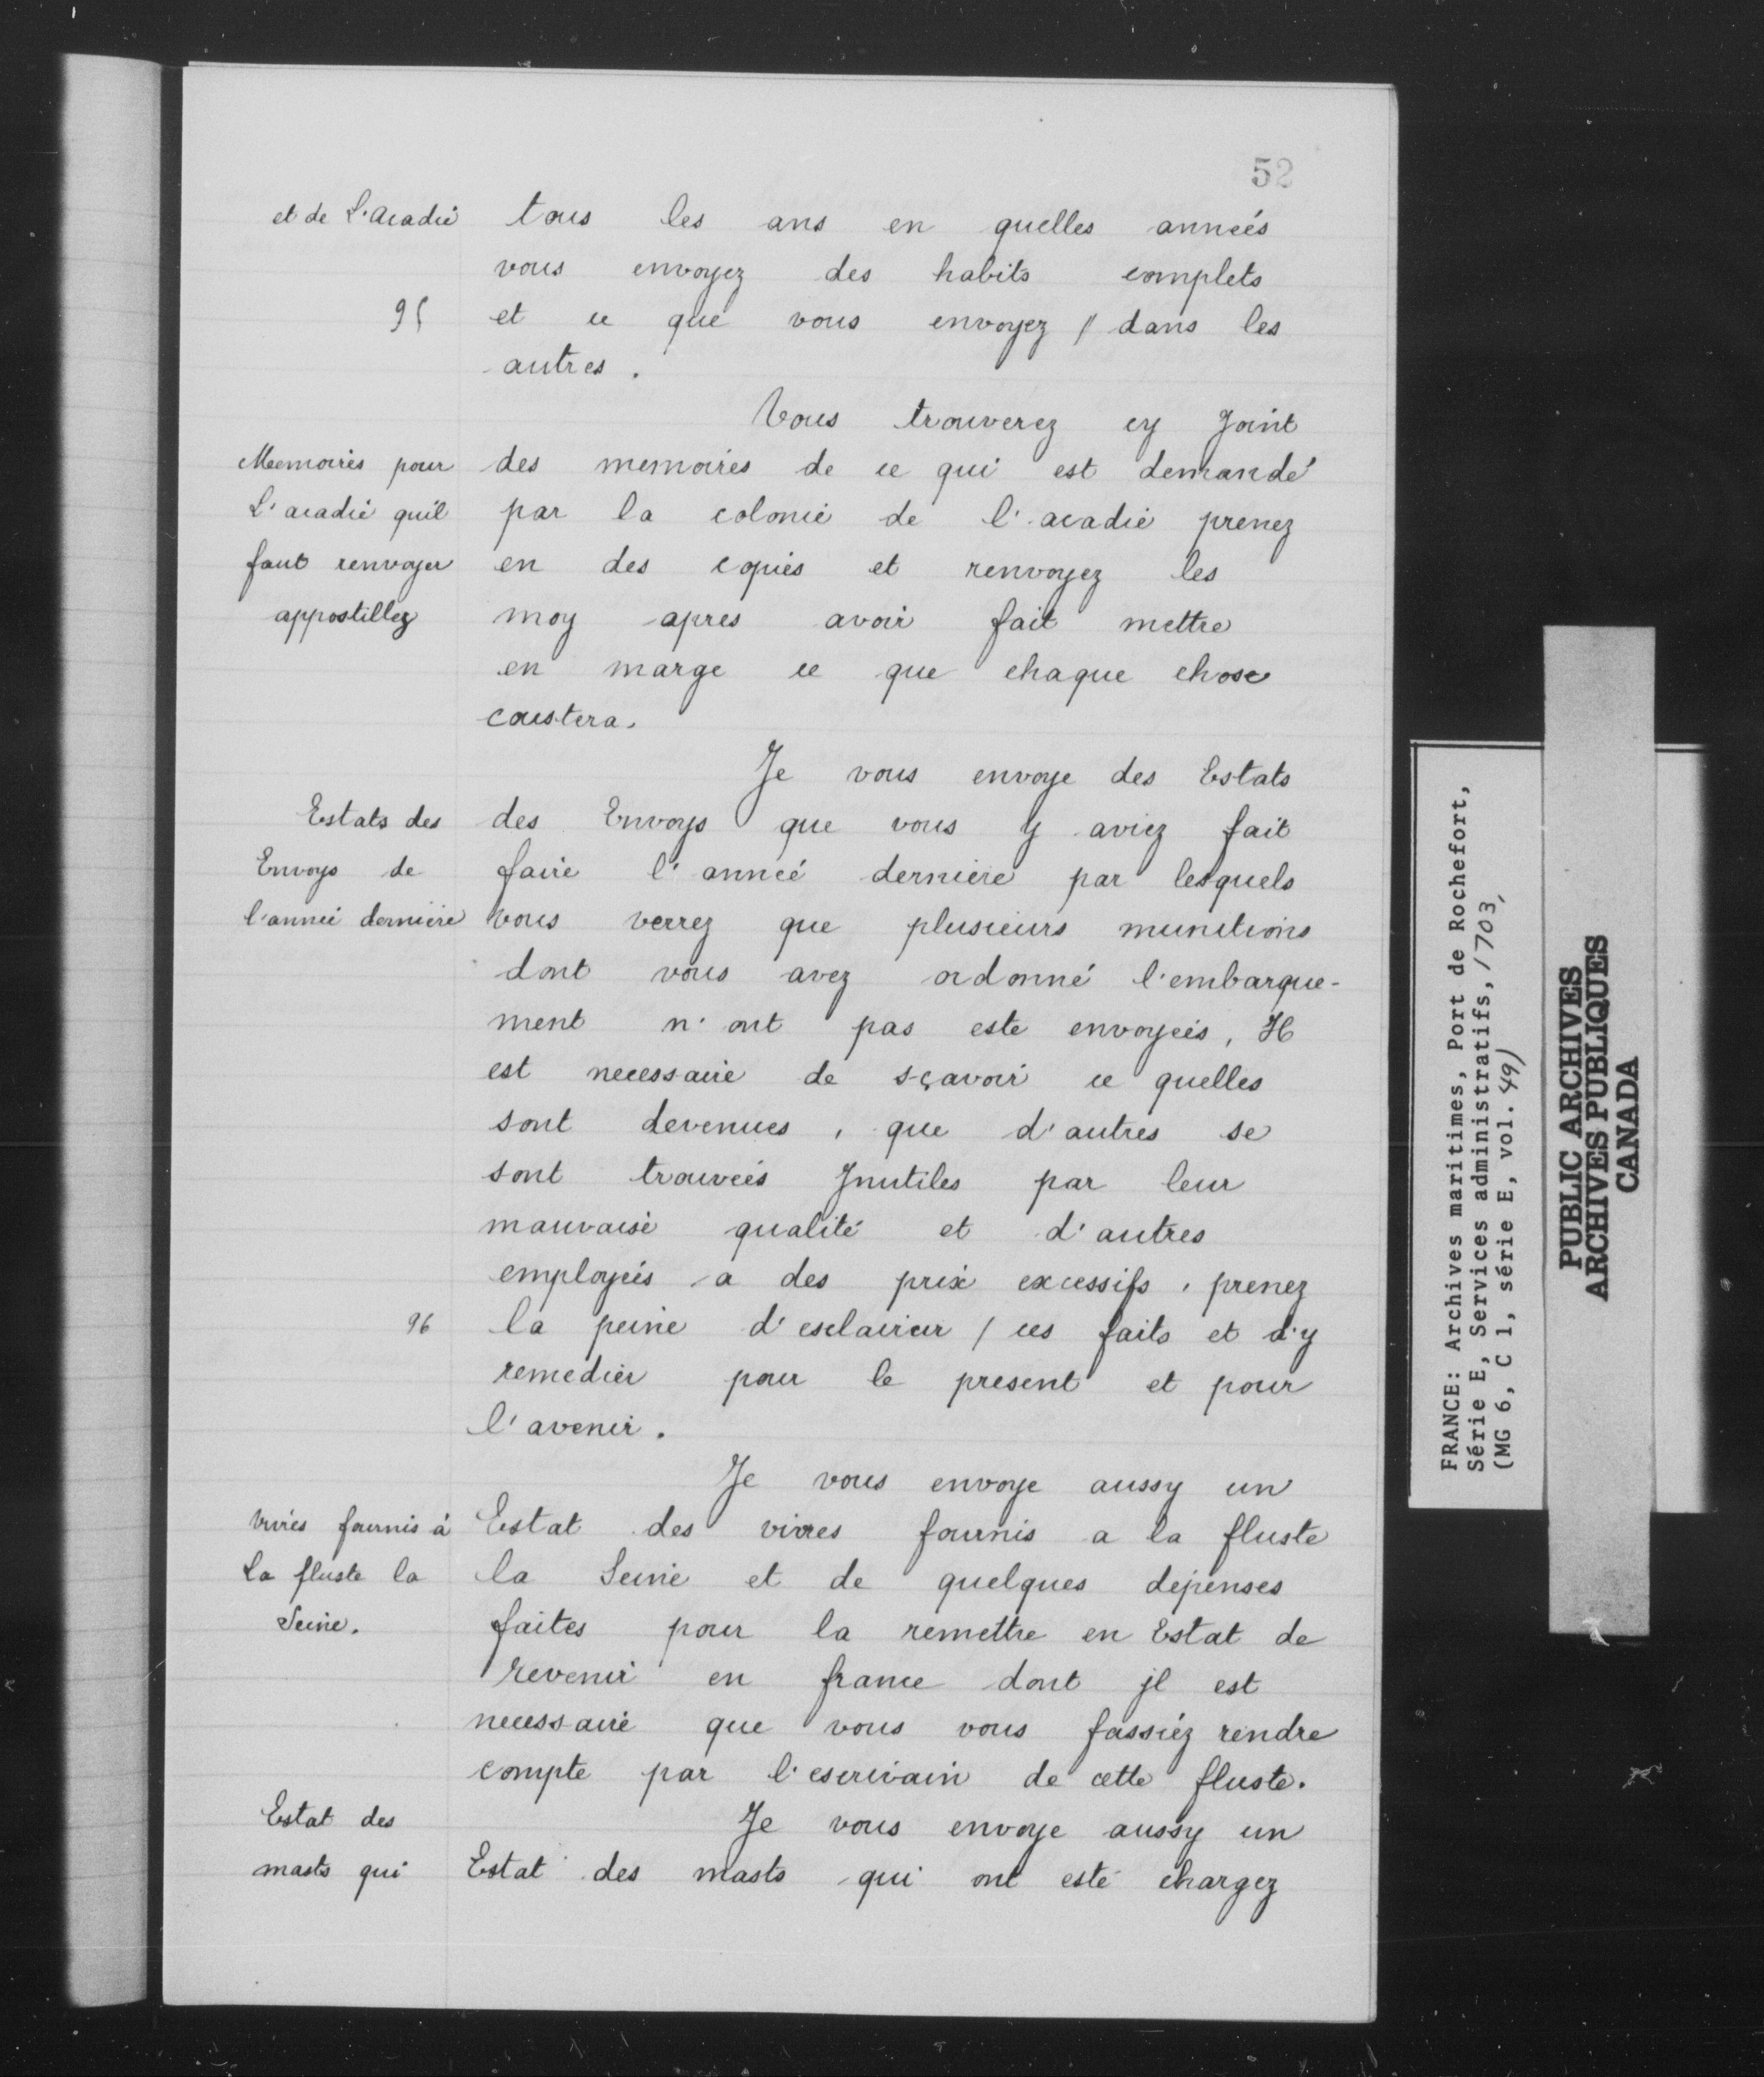 52
et de L'acadie tous les ans en quelles années
vous envoyez des habits complets
95 et ce que vous envoyez / dans les
autres.
Vous trouverez cy Joint
Memoires pour des memoires de ce qui est demandé
L'acadie quil par la colonie de l'acadie prenez
faut renvoyer en des copies et renvoyez les
appostillez moy apres avoir fait mettre
en marge ce que chaque chose
coustera.
Je vous envoye des Estats
Estats des des Envoys que vous y aviez fait
Envoys de faire l'année derniere par lesquels
l'année derniere vous verrez que plusieurs munitions
dont vous avez ordonné l'embarque-
ment n'ont pas este envoyées, Il
est necessaire de sçavoir ce quelles
sont devenues, que d'autres se
sont trouvées Inutiles par leur
mauvaise qualité et d'autres
employées a des prix excessifs, prenez
96 la peine d'esclaircir / ces faits et d'y
remedier pour le present et pour
l'avenir.
Je vous envoye aussy un
Vivres fournis à Estat des vivres fournis a la fluste
La fluste la la Seine et de quelques depenses
Seine. faites pour la remettre en Estat de
revenir en france dont jl est
necessaire que vous vous fassiez rendre
compte par l'escrivain de cette fluste.
Estat des Je vous envoye aussy un
masts qui Estat des masts qui ont esté chargez
FRANCE: Archives maritimes, Port de Rochefort,
Série E, Services administratifs, 1703,
(MG 6, C 1, série E, vol. 49)
PUBLIC ARCHIVES
ARCHIVES PUBLIQUES
CANADA